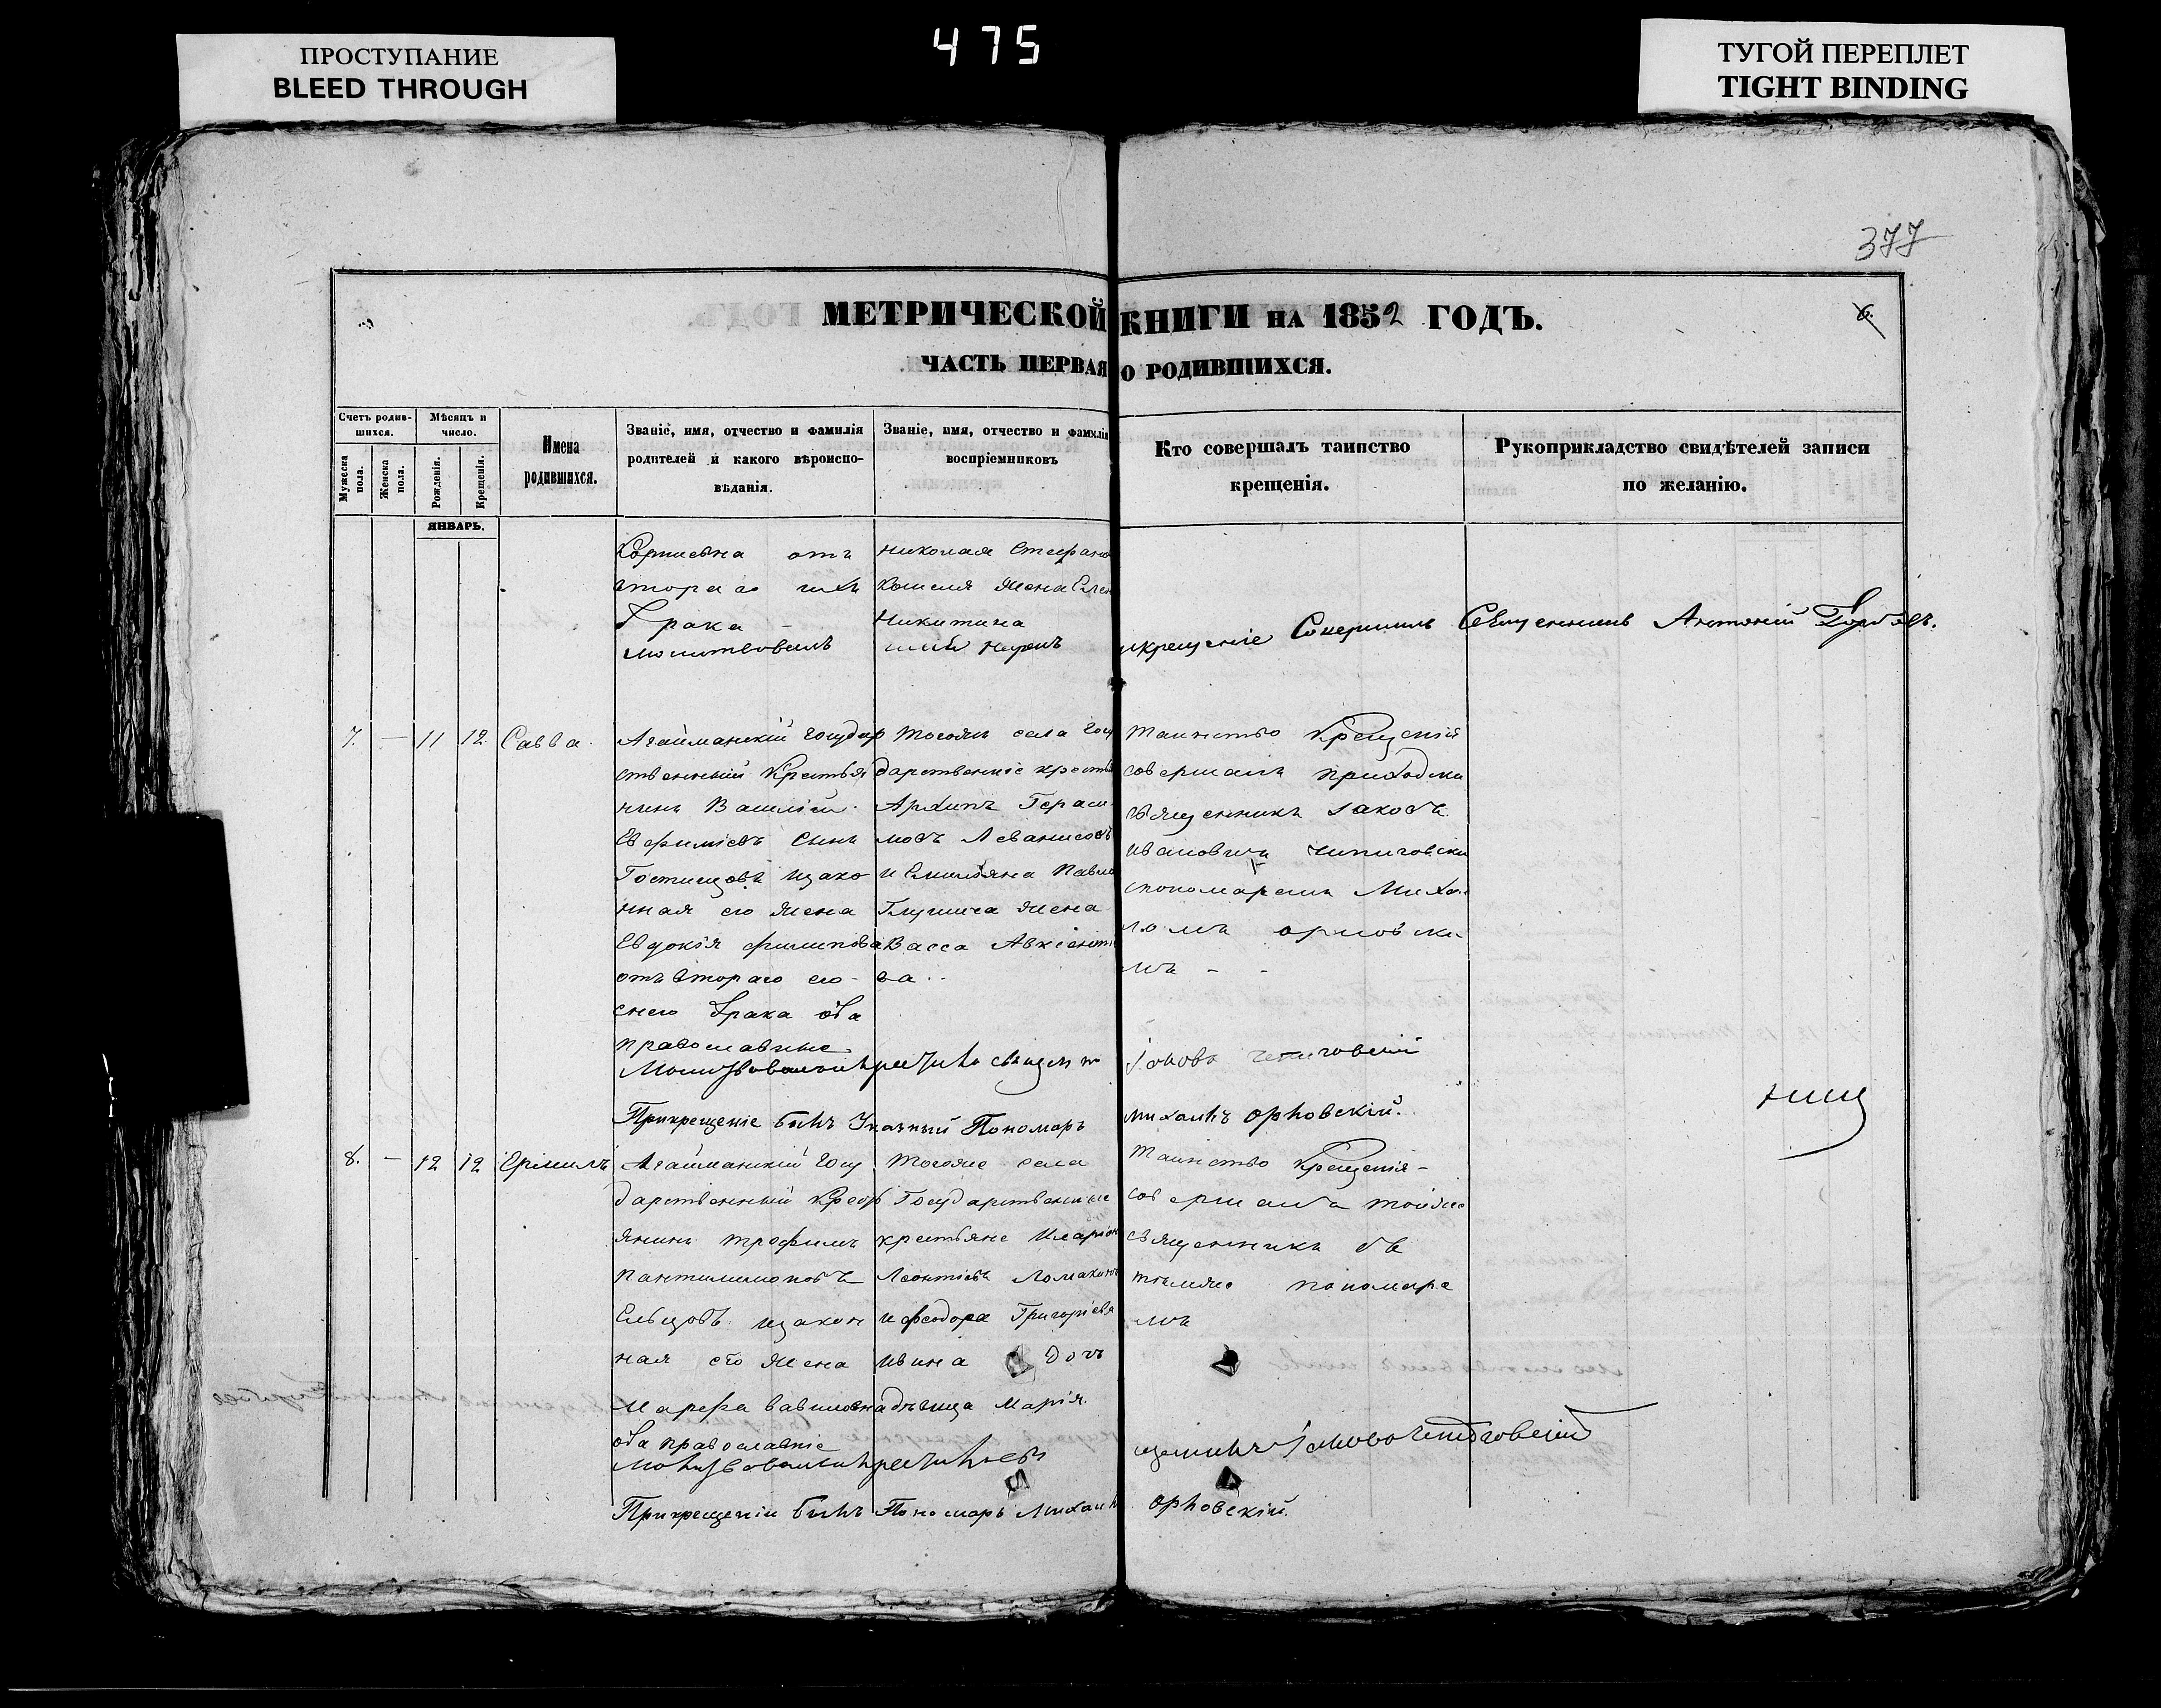 475
ПРОСТУПАНИЕ
BLEED THROUGH
ТУГОЙ ПЕРЕПЛЕТ
TIGHT BINDING
377
МЕТРИЧЕСКОЙ КНИГИ НА 1852 ГОДЪ.
6.
ЧАСТЬ ПЕРВАЯ О РОДИВШИХСЯ.
Счетъ родив-
шихся.
Мужеска пола.
Женска пола.
Мѣсяцъ и
число.
Рожденія.
Крещенія.
Имена
родившихся.
Званіе, имя, отчество и фамилія
родителей и какого вѣроиспо-
вѣданія.
Званіе, имя, отчество и фамилія
воспріемниковъ
Кто совершалъ таинство
крещенія.
Рукоприкладство свидѣтелей записи
по желанію.
ЯНВАРЬ.
отъ
втораго ихъ
брака –
молитвовалъ
Николая Стефано
жена Елен
Никитина
икрещеніе Совершилъ Священникъ Антоній
7. — 11 12 Савва.
Агайманскій Государ
ственный Крестья
нинъ Василій
Евфиміевъ сынъ
изако
нная его жена
Евдокія филипова
отъ втораго его
снею брака оба
православные
Тогожъ села Госу
дарственніе кресть
Архипъ Гераси
мовъ
и Емиліяна Павло
жена
Васса Авксенті
ва..
Таинство Крещенія
совершалъ приходски
священникъ Іаковъ
Ивановичъ
спономаремъ Михаи
ломъ орловски
мъ – –
Молитвовалъ и крестилъ священ
Іаковъ
При крещеніе былъ Указный Пономарь
михаилъ орловскій.
8. – 12 12 Ермилъ
Агайманскій Госу
дарственный крест
янинъ трофимъ
пантилимоновъ
Ельцовъ изакон
ная его жена
Марфа вавиловна
оба православніе
Тогоже села
Государственные
крестьяне Иларіон
Леонтіевъ Ломакинъ
и феодора Григоріева
ивина дочь
дѣвица Марія.
Таинство Крещенія –
совершалъ тойже
священникъ съ
темже пономаре
мъ
Молитвовалъ и крестилъ свя
щенникъ Іаковъ
При крещеніи былъ Пономарь Михаил
орловскій.